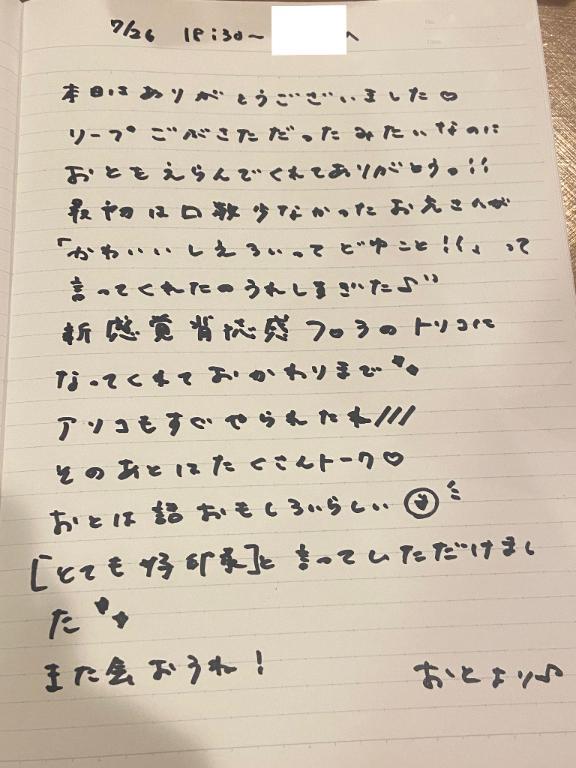 7/26 18:30～ へ
本日はありがとうございました♡
リープ ごぶさただったみたいなのに
おとをえらんでくれてありがとうっ!!
最初は口数少なかったお兄さんが
「かわいいしえろいってどゆこと!!」って
言ってくれたのうれしすぎた♪"
新感覚背徳感フロ3のトリコに
なってくれておかわりまで
アソコもすぐやられたね///
そのあとはたくさんトーク♡
おとは話おもしろいらしい
[とても好印象]と言っていただけまし
た
また会おうね!
おとより♪